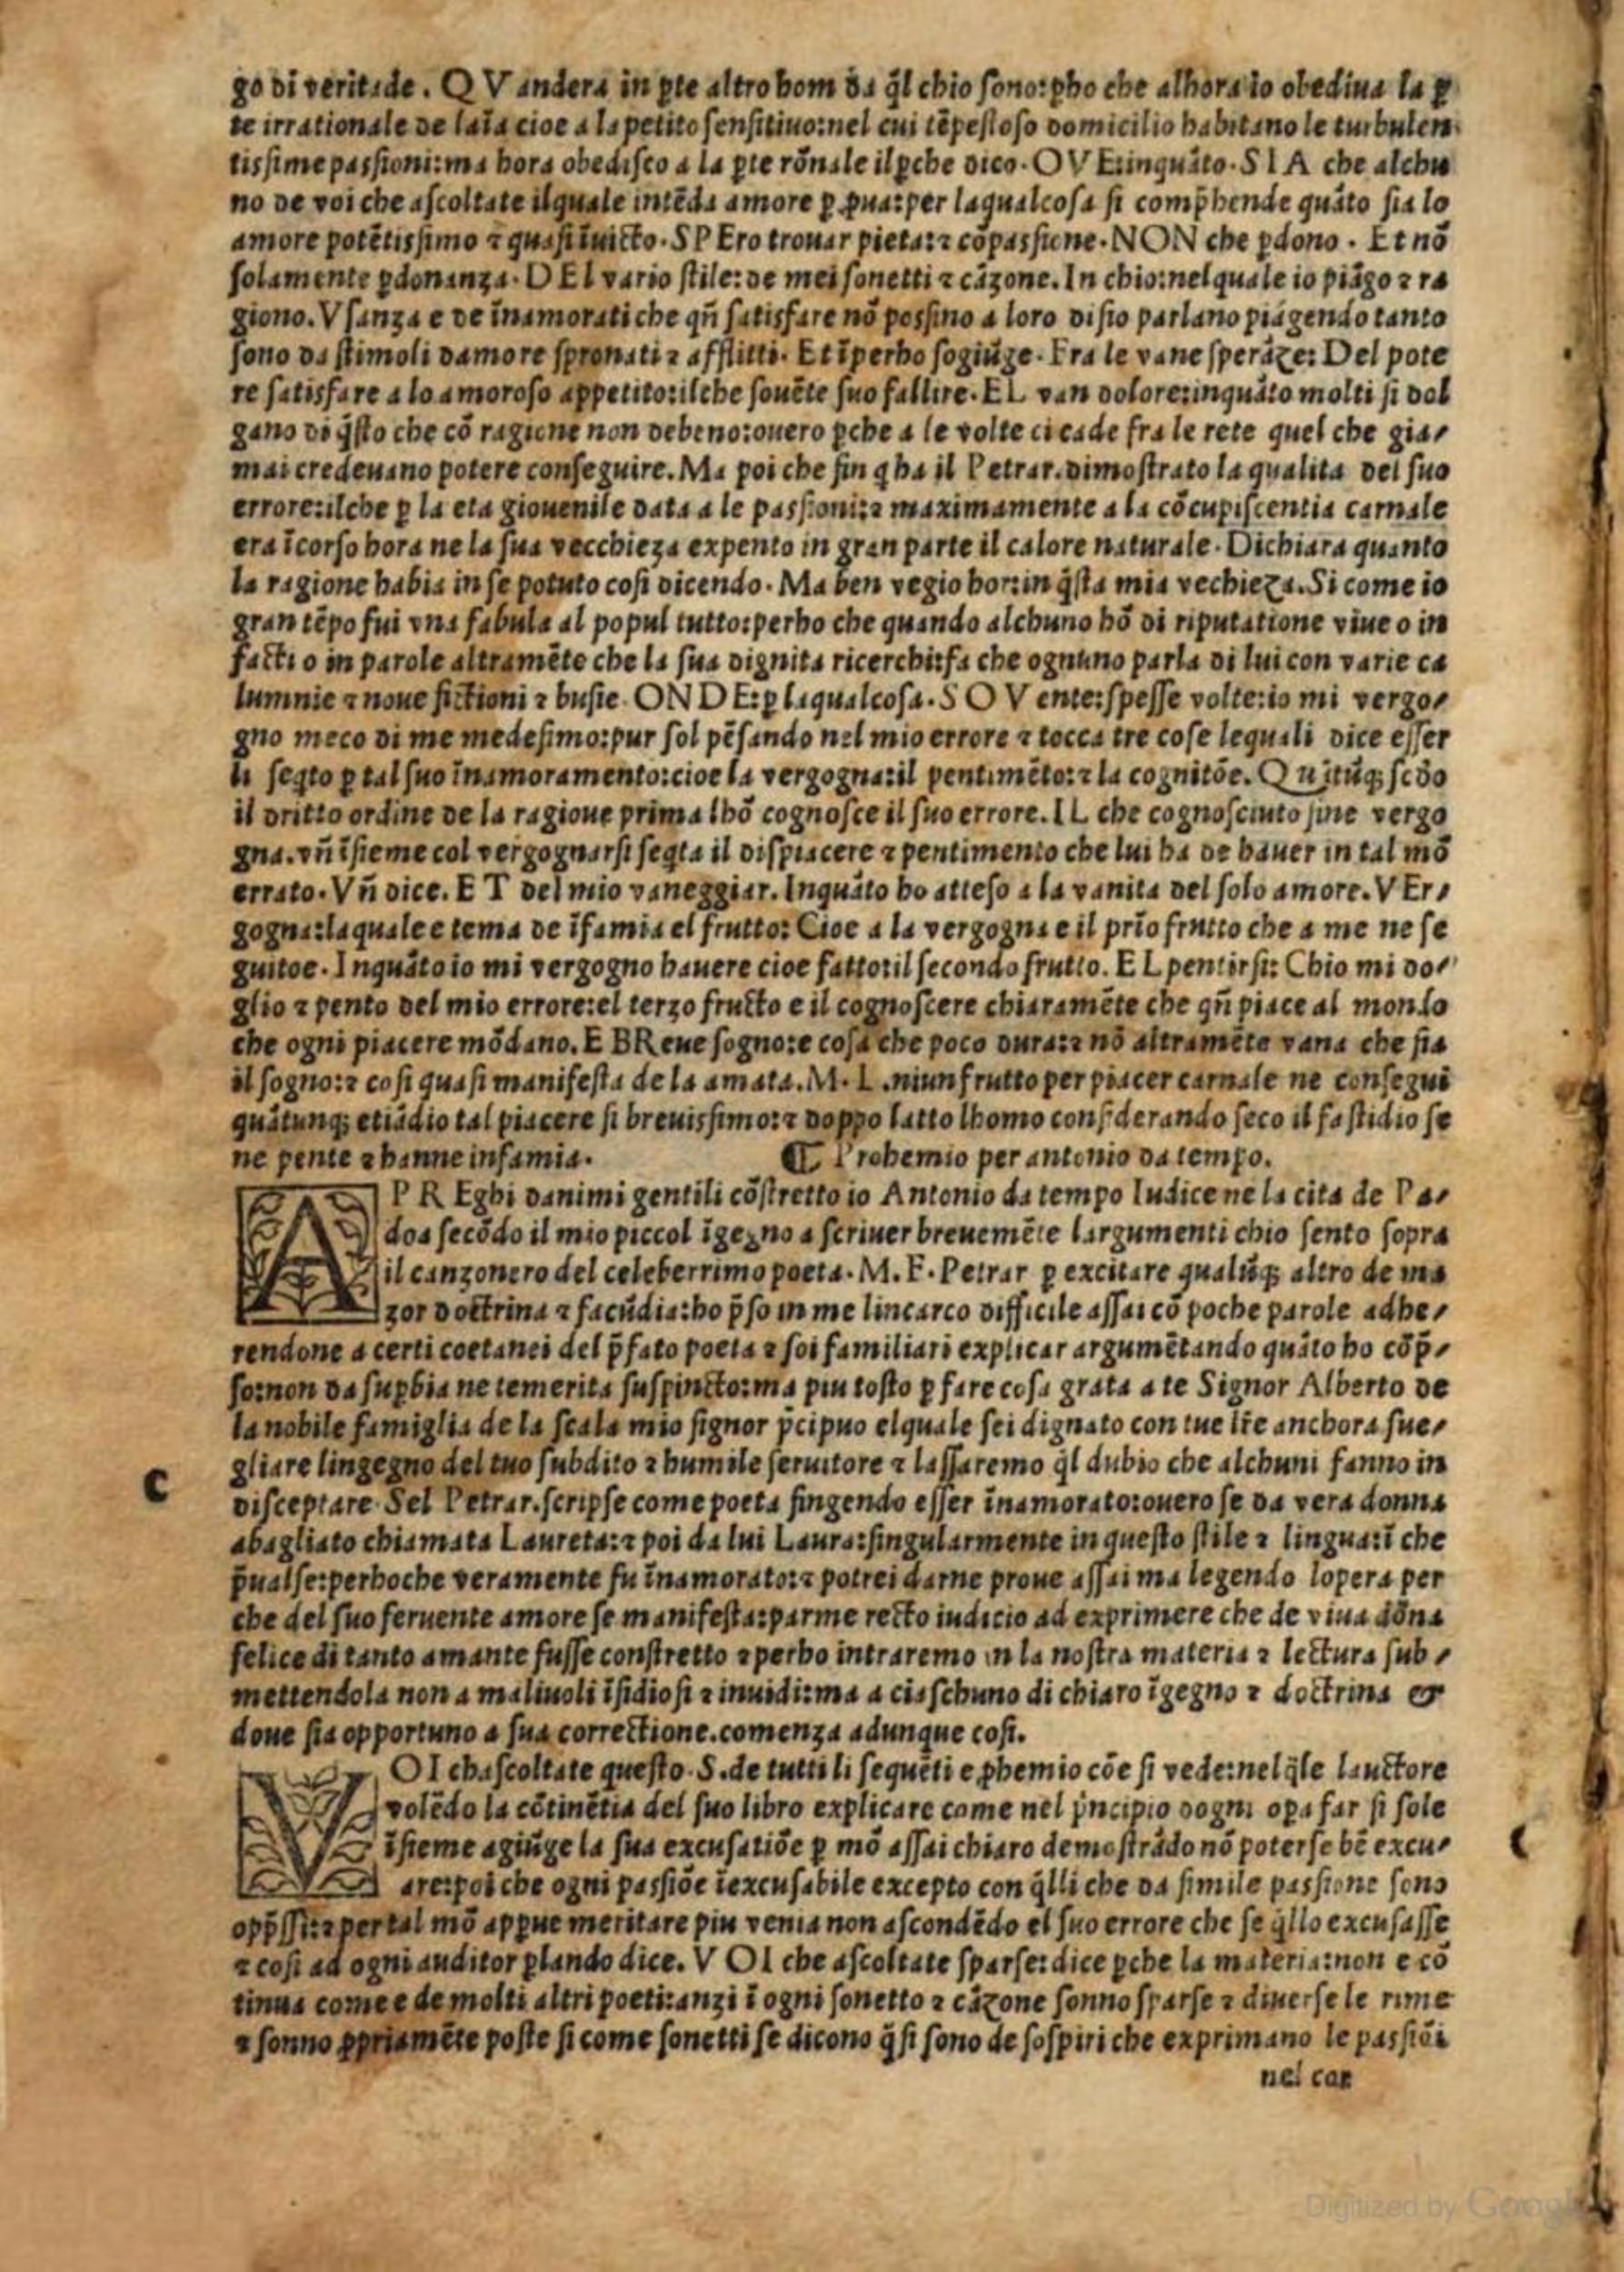 go di veritade. QVandera in ꝑte altro hom da q̃l chio ſono:ꝑho che alhora io obediua la ꝑ
te irrationale de laĩa cioe a lapetito ſenſitiuo:nel cui tẽpeſtoſo domicilio habitano le turbulen
tiſſime paſſioni:ma hora obediſco a la ꝑte rõnale ilꝑche dico. OVE:inquãto. SIA che alchu
no de voi che aſcoltate ilquale intẽda amore ꝑ ꝓua:per laqualcoſa ſi comp̃hende quãto ſia lo
amore potẽtiſſimo ⁊ quaſi ĩuicto. SPEro trouar pieta:⁊ cõpaſſione. NON che ꝑdono. Et nõ
ſolamente ꝑdonanza. DEl vario ſtile:de mei ſonetti ⁊ cãzone. In chio:nelquale io piãgo ⁊ ra
giono. Vſanza e de ĩnamorati che qñ ſatisfare nõ poſſino a loro diſio parlano piãgendo tanto
ſono da ſtimoli damore ſpronati ⁊ afflitti. Et ĩperho ſogiũge. Fra le vane ſperãze: Del pote
re ſatisfare a lo amoroſo appetito:ilche ſouẽte ſuo fallire. EL van dolore:inquãto molti ſi dol
gano di q̃ſto che cõ ragione non debeno:ouero ꝑche a le volte ci cade fra le rete quel che gia/
mai credeuano potere conſeguire. Ma poi che fin q ha il Petrar. dimoſtrato la qualita del ſuo
errore:ilche ꝑ la eta giouenile data a le paſſioni:⁊ maximamente a la cõcupiſcentia carnale
era ĩcorſo hora ne la ſua vecchieza expento in gran parte il calore naturale. Dichiara quanto
la ragione habia in ſe potuto coſi dicendo. Ma ben vegio hor:in q̃ſta mia vechieza. Si come io
gran tẽpo fui vna fabula al popul tutto:perho che quando alchuno hõ di riputatione viue o in
facti o in parole altramẽte che la ſua dignita ricerchi:fa che ognuno parla di lui con varie ca
lumnie ⁊ noue fictioni ⁊ buſie. ONDE:ꝑ laqualcoſa. SOVente:ſpeſſe volte:io mi vergo/
gno meco di me medeſimo:pur ſol pẽſando nel mio errore ⁊ tocca tre coſe lequali dice eſſer
li ſeq̃to ꝑ tal ſuo ĩnamoramento:cioe la vergogna:il pentimẽto:⁊ la cognitõe. Quãtũq; ſcdo
il dritto ordine de la ragione prima lhõ cognoſce il ſuo errore. IL che cognoſciuto ſine vergo
gna. vñ ĩſieme col vergognarſi ſeq̃ta il diſpiacere ⁊ pentimento che lui ha de hauer in tal mõ
errato. Vñ dice. ET del mio vaneggiar. Inquãto ho atteſo a la vanita del ſolo amore. VEr/
gogna:laquale e tema de ĩfamia el frutto: Cioe a la vergogna e il prĩo frutto che a me ne ſe
guitoe. Inquãto io mi vergogno hauere cioe fatto:il ſecondo frutto. EL pentirſi: Chio mi do/
glio ⁊ pento del mio errore:el terzo fructo e il cognoſcere chiaramẽte che qñ piace al mondo
che ogni piacere mõdano. E BReue ſogno:e coſa che poco dura:⁊ nõ altramẽte vana che ſia
il ſogno:⁊ coſi quaſi manifeſta de la amata. M. L. niun frutto per piacer carnale ne conſegui
quãtunq; etiãdio tal piacere ſi breuiſſimo:⁊ doppo latto lhomo conſiderando ſeco il faſtidio ſe
ne pente ⁊ hanne infamia.
¶ Prohemio per antonio da tempo.
APREghi danimi gentili cõſtretto io Antonio da tempo Iudice ne la cita de Pa/
doa ſecõdo il mio piccol ĩgegno a ſcriuer breuemẽte largumenti chio ſento ſopra
il canzonero del celeberrimo poeta. M. F. Petrar ꝑ excitare qualũq; altro de ma
zor doctrina ⁊ facũdia:ho p̃ſo in me lincarco difficile aſſai cõ poche parole adhe/
rendone a certi coetanei del p̃fato poeta ⁊ ſoi familiari explicar argumẽtando quãto ho cõp̃/
ſo:non da ſuꝑbia ne temerita ſuſpincto:ma piu toſto ꝑ fare coſa grata a te Signor Alberto de
la nobile famiglia de la ſcala mio ſignor p̃cipuo elquale ſei dignato con tue lr̃e anchora ſue/
gliare lingegno del tuo ſubdito ⁊ humile ſeruitore ⁊ laſſaremo q̃l dubio che alchuni fanno in
C
diſceptare Sel Petrar. ſcripſe come poeta fingendo eſſer ĩnamorato:ouero ſe da vera donna
abagliato chiamata Laureta:⁊ poi da lui Laura:ſingularmente in queſto ſtile ⁊ lingua:ĩ che
p̃ualſe:perhoche veramente fu ĩnamorato:⁊ potrei darne proue aſſai ma legendo lopera per
che del ſuo feruente amore ſe manifeſta:parme recto iudicio ad exprimere che de viua dõna
felice di tanto amante fuſſe conſtretto ⁊ perho intraremo in la noſtra materia ⁊ lectura ſub/
mettendola non a maliuoli ĩſidioſi ⁊ inuidi:ma a ciaſchuno di chiaro ĩgegno ⁊ doctrina &
doue ſia opportuno a ſua correctione. comenza adunque coſi.
VOI chaſcoltate queſto. S. de tutti li ſequẽti e ꝓhemio cõe ſi vede:nelq̃le lauctore
volẽdo la cõtinẽtia del ſuo libro explicare come nel p̃ncipio dogni oꝑa far ſi ſole
ĩſieme agiũge la ſua excuſatiõe ꝑ mõ aſſai chiaro demoſtrãdo nõ poterſe bẽ excu/
are:poi che ogni paſſiõe ĩexcuſabile excepto con q̃lli che da ſimile paſſione ſono
opp̃ſſi:⁊ per tal mõ apꝑue meritare piu venia non aſcondẽdo el ſuo errore che ſe q̃llo excuſaſſe
⁊ coſi ad ogni auditor ꝑlando dice. VOI che aſcoltate ſparſe:dice ꝑche la materia:non e cõ
tinua come e de molti altri poeti:anzi ĩ ogni ſonetto ⁊ cãzone ſonno ſparſe ⁊ diuerſe le rime
⁊ ſonno ꝓpriamẽte poſte ſi come ſonetti ſe dicono q̃ſi ſono de ſoſpiri che exprimano le paſſiõi
nel cor
Digitized by Google